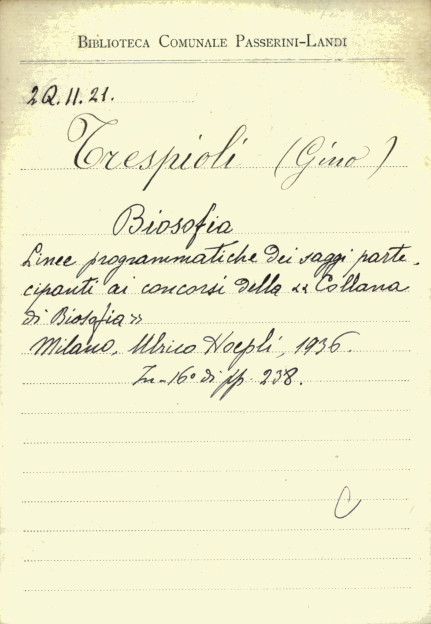 BIBLIOTECA COMUNALE PASSERINI-LANDI
2Q.II.21.
Trespioli (Gino)
Biosofia
Linee programmatiche dei saggi parte-
cipanti ai concorsi della «Collana
di Biosofia»
Milano, Ulrico Hoepli, 1936.
In-16° di pp. 238.
C